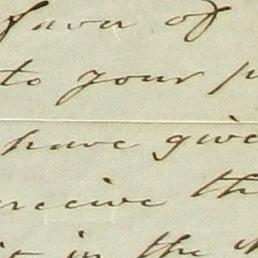 favor of
to your p
have give
receive th
it in the